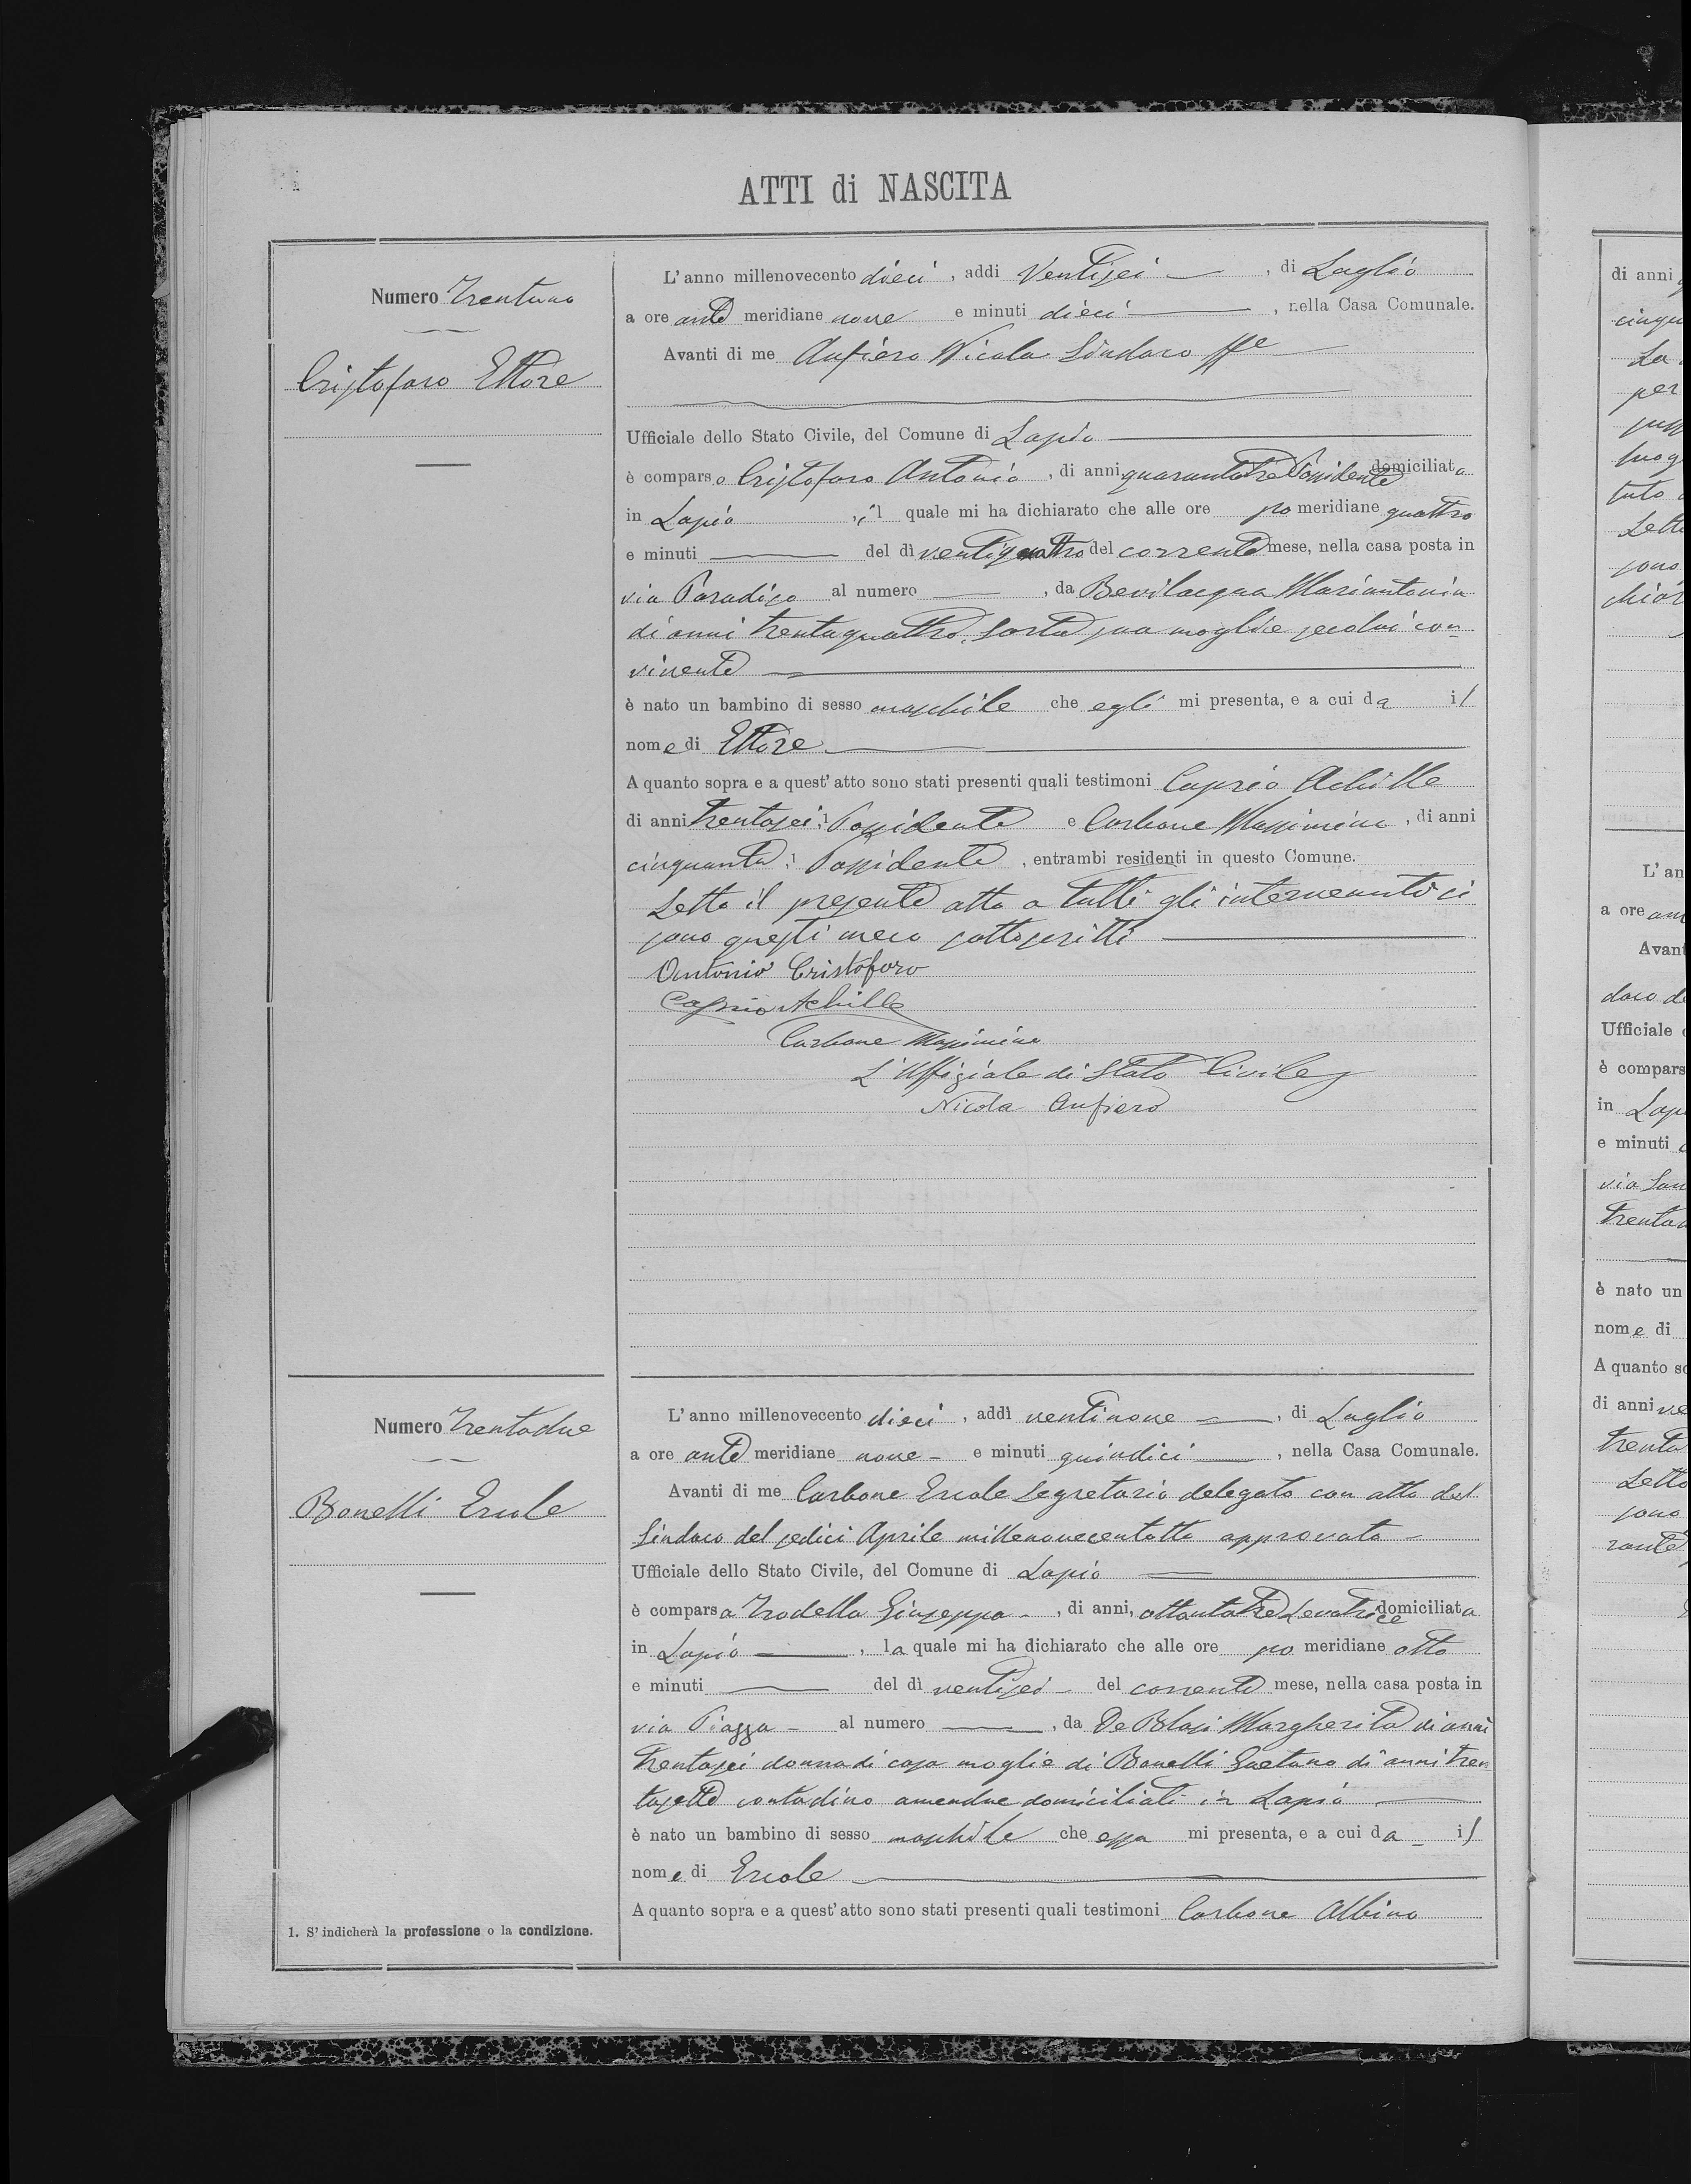 ATTI di NASCITA
Numero Trentuno
Cristofaro Ettore
L'anno millenovecento dieci, addi Ventisei, di Luglio
a ore ante meridiane nove e minuti dieci, nella Casa Comunale.
Avanti di me Anfiero Nicola Sindaco ffe
Ufficiale dello Stato Civile, del Comune di Lapio
è comparso Cristofaro Antonio, di anni quarantatre Possidente domiciliato
in Lapio, il quale mi ha dichiarato che alle ore po meridiane quattro
e minuti del dì ventiquattro del corrente mese, nella casa posta in
via Paradiso al numero, da Bevilacqua Mariantonia
di anni trentaquattro, Sarta sua moglie secolui con-
vivente
è nato un bambino di sesso maschile che egli mi presenta, e a cui da il
nome di Ettore
A quanto sopra e a quest'atto sono stati presenti quali testimoni Caprio Achille
di anni trentasei, Possidente e Carbone Massimino, di anni
cinquanta, Possidente, entrambi residenti in questo Comune.
Letto il presente atto a tutti gli intervenuti si
sono questi meco sottoscritti
Antonio Cristofaro
Caprio Achille
Carbone Massimino
L'Uffiziale di Stato Civile
Nicola Anfiero
Numero Trentadue
Bonelli Ercole
L'anno millenovecento dieci, addì ventinove, di Luglio
a ore ante meridiane nove e minuti quindici, nella Casa Comunale.
Avanti di me Carbone Ercole Segretario delegato con atto del
Sindaco del sedici Aprile millenovecentotto approvato
Ufficiale dello Stato Civile, del Comune di Lapio
è comparsa Trodella Giuseppa, di anni, ottantatre Levatrice domiciliata
in Lapio, la quale mi ha dichiarato che alle ore po meridiane otto
e minuti del dì ventisei del corrente mese, nella casa posta in
via Piazza al numero, da De Blasi Margherita di anni
trentasei donna di casa moglie di Bonelli Gaetano di anni tren
tasette contadino amendue domiciliati in Lapio
è nato un bambino di sesso maschile che essa mi presenta, e a cui da il
nome di Ercole
A quanto sopra e a quest'atto sono stati presenti quali testimoni Carbone Albino
1. S'indicherà la professione o la condizione.
di anni
cinqu
La
per
tuto
Lett
sono
chiar
L'an
a ore an
Avant
daco d
Ufficiale
è compars
in Lapi
e minuti
via San
trenta
è nato un
nome di
A quanto so
di anni ve
trenta
Letto
sono
rante